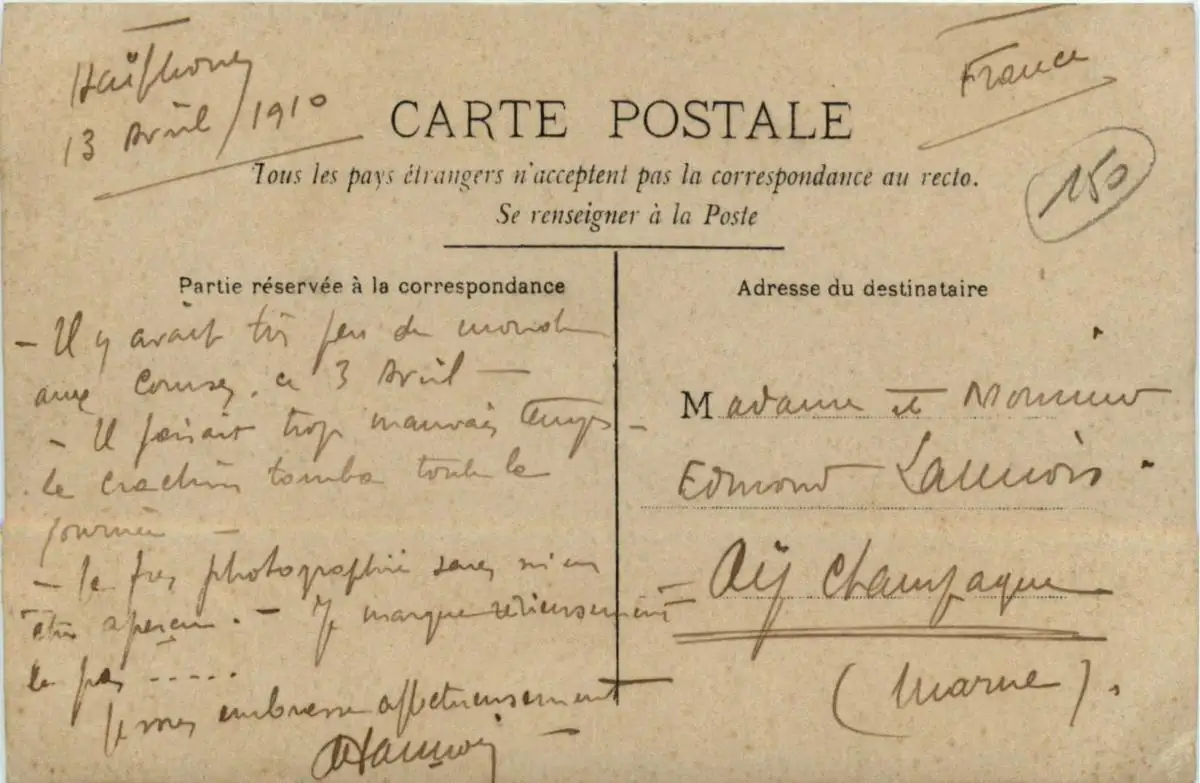 Haïphong
13 Avril / 1910
France
CARTE POSTALE
150
Tous les pays étrangers n'acceptent pas la correspondance au recto.
Se renseigner à la Poste
Partie réservée à la correspondance
- Il y avait très peu de monde
aux Courses, ce 3 Avril -
- Il faisait trop mauvais temps -
le crachin tomba toute la
journée -
- Je fus photographié sans m'en
être aperçu. - Je marque sérieusement
le pas .....
Je vous embrasse affectueusement
Adresse du destinataire
Madame et Monsieur
Edmond Launois
= Aÿ Champagne
(Marne).